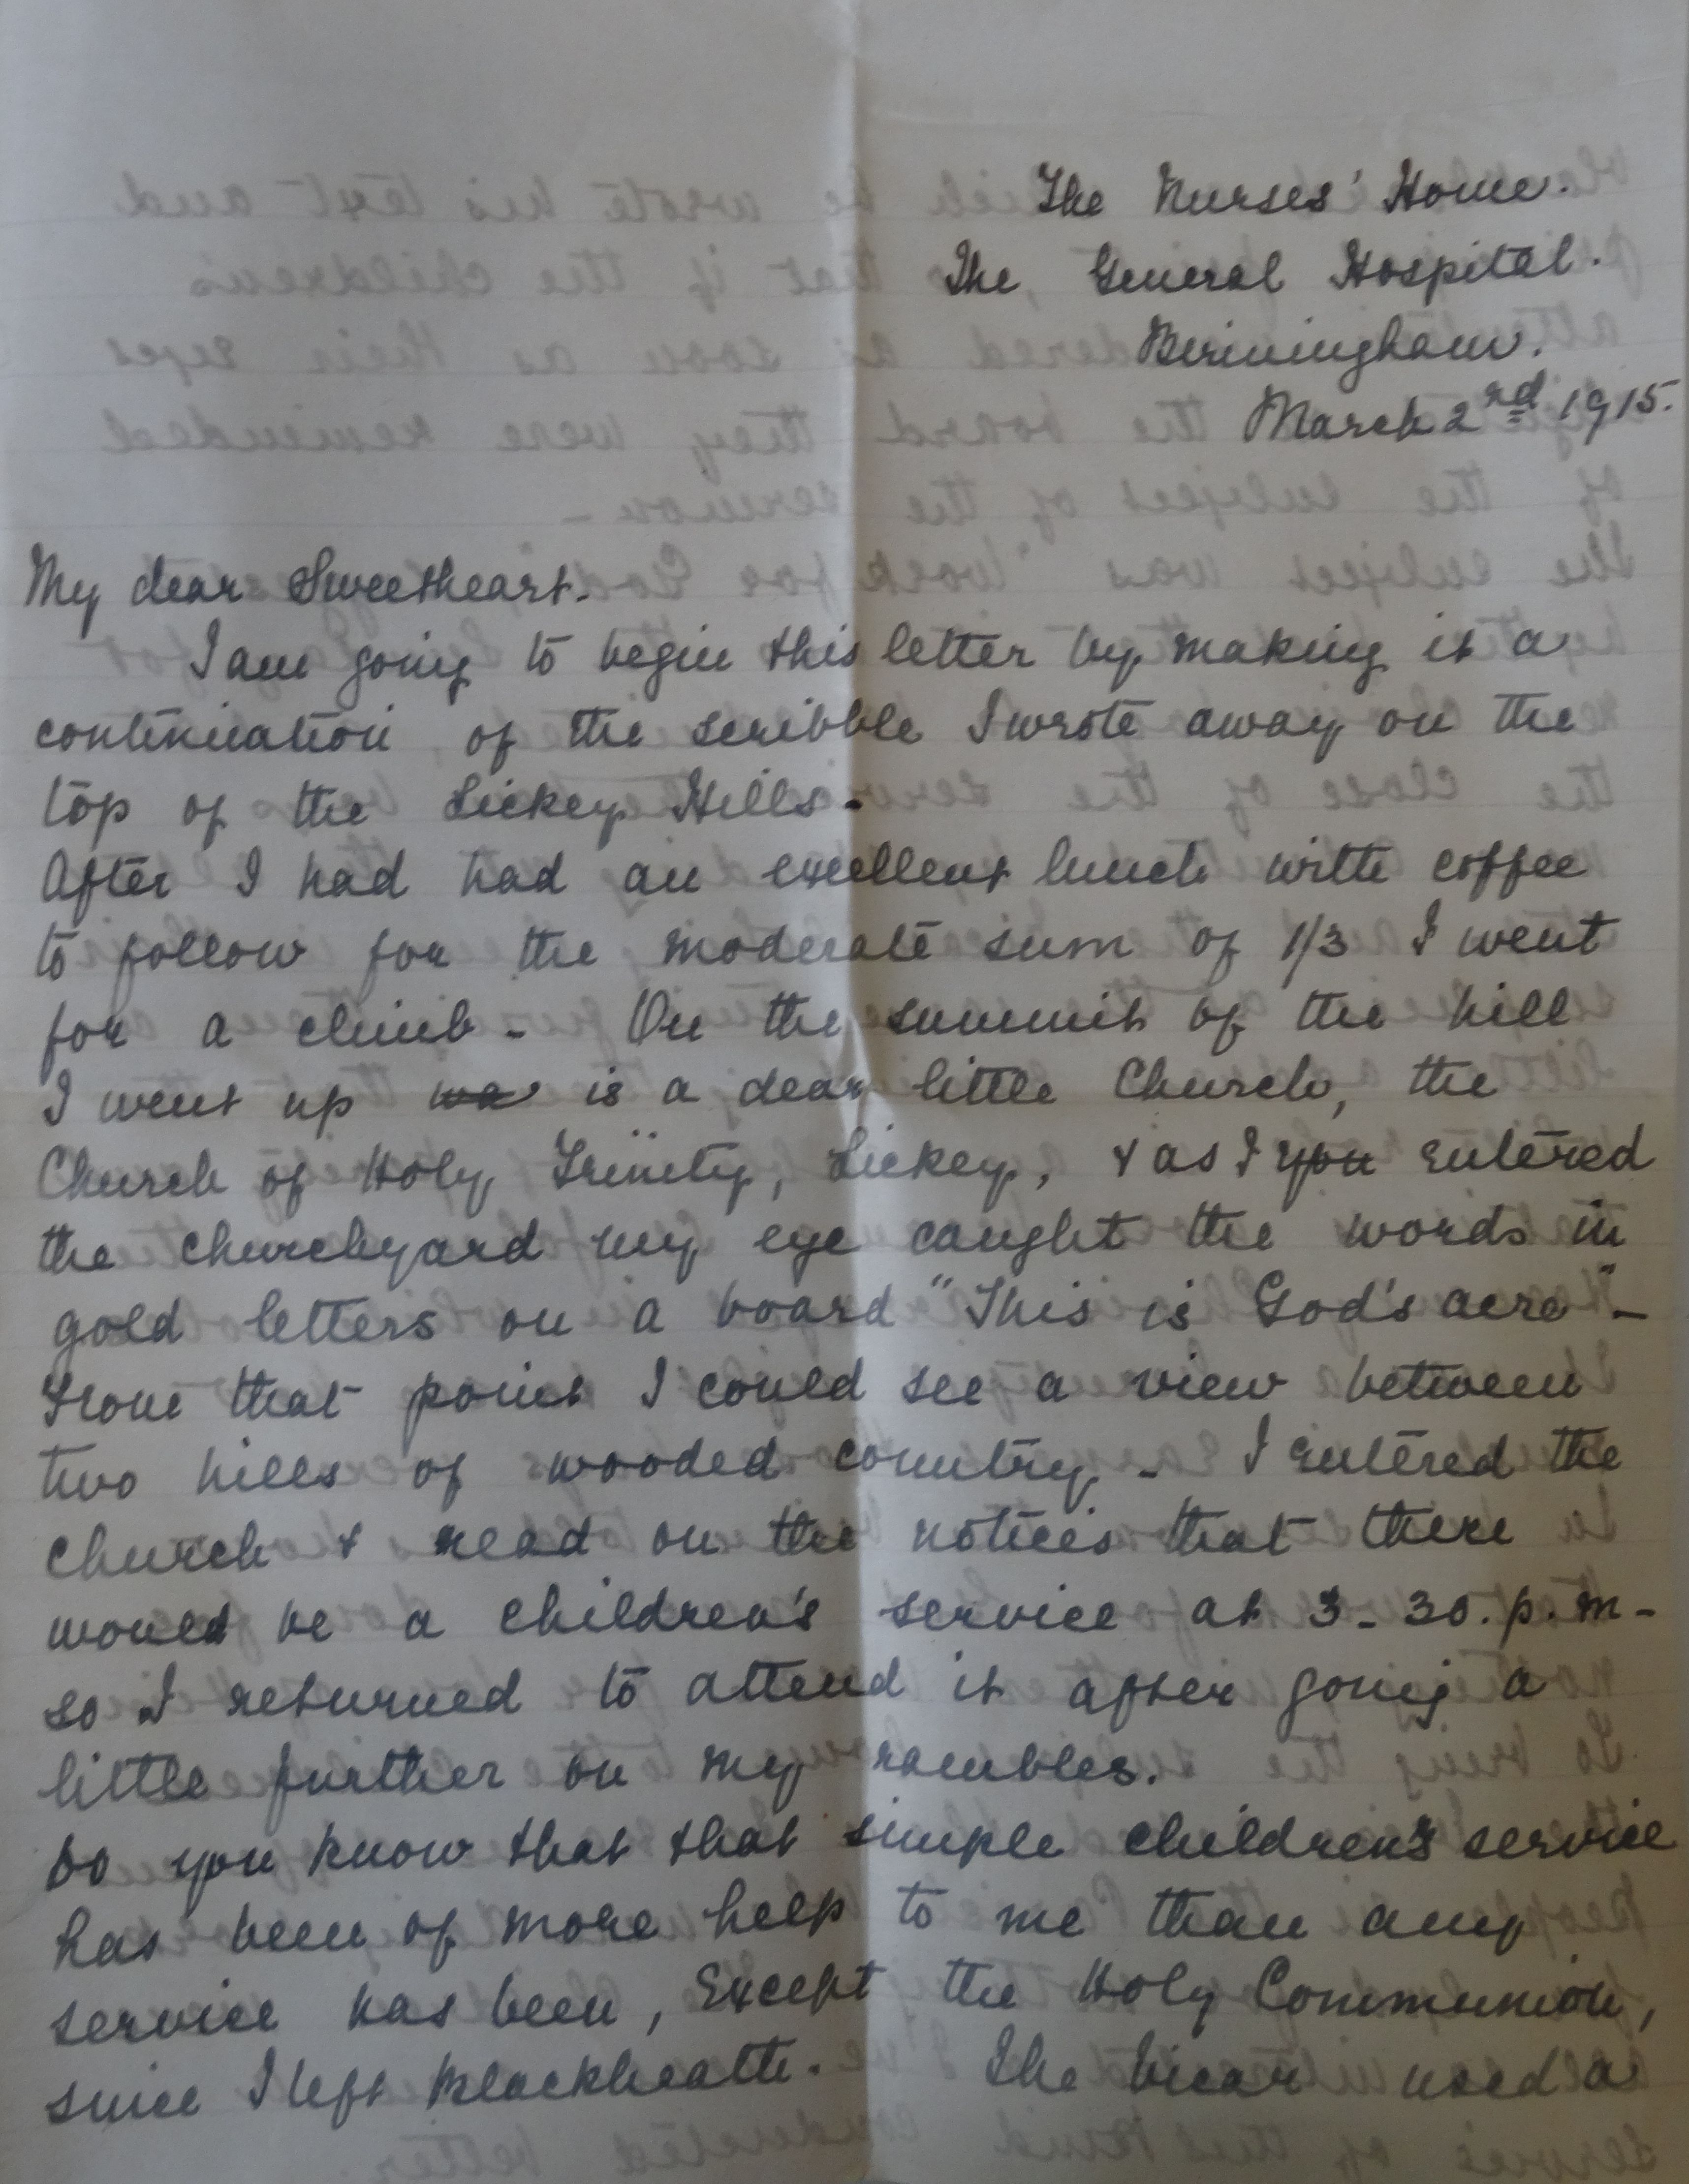 The Nurses' Home.
The General Hospital.
Birmingham.
March 2nd 1915.
My dear Sweetheart.
I am going to begin this letter by making it a
continuation of the scribble I wrote away on the
top of the Lickey Hills.
After I had had an excellent lunch with coffee
to follow for the moderate sum of 1/3 I went
for a climb - On the summit of the hill
I went up wa is a dear little Church, the
Church of Holy Trinity, Lickey, & as I you entered
the churchyard my eye caught the words in
gold letters on a board "This is God's acre" -
From that point I could see a view between
two hills of wooded country - I entered the
church & read on the notices that there
would be a children's service at 3-30. p.m -
so I returned to attend it after going a
little further on my rambles.
Do you know that that simple children's service
has been of more help to me than any
service has been, Except the Holy Communion,
since I left Blackheath. The Vicar used a